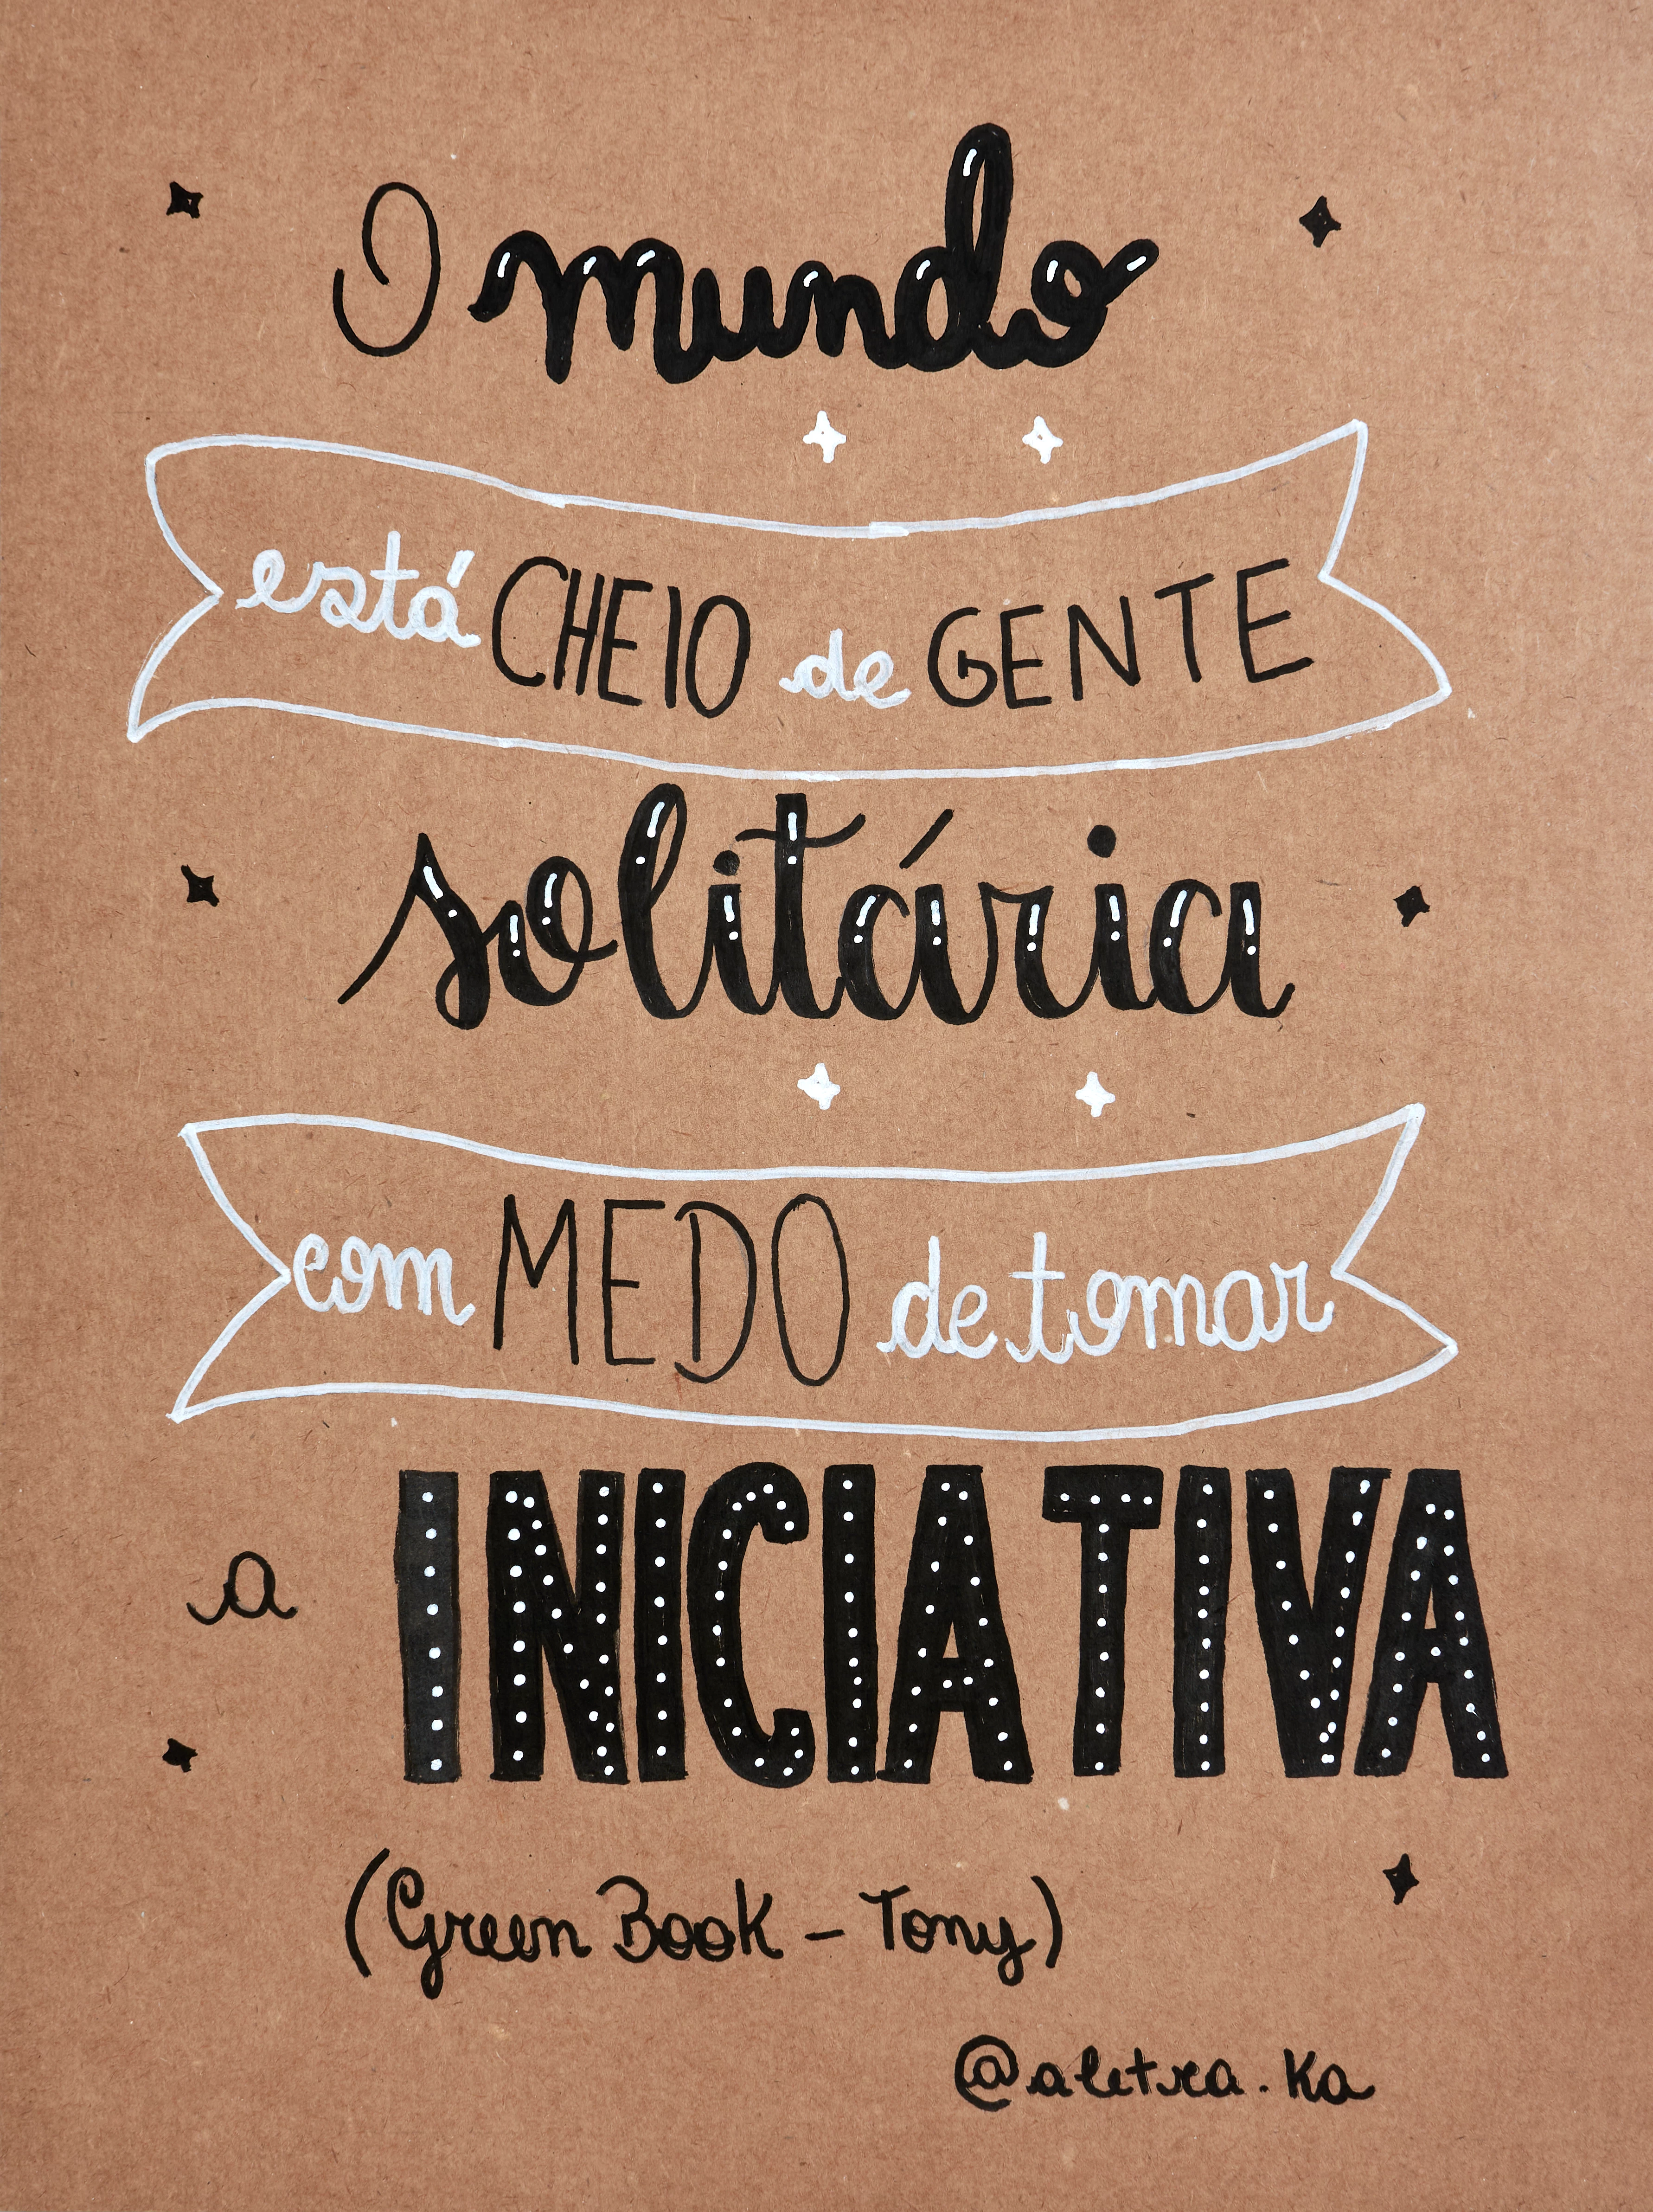 O mundo
está CHEIO de GENTE
solitária
com MEDO de tomar
a INICIATIVA
(Green Book - Tony)
@aletra.ka